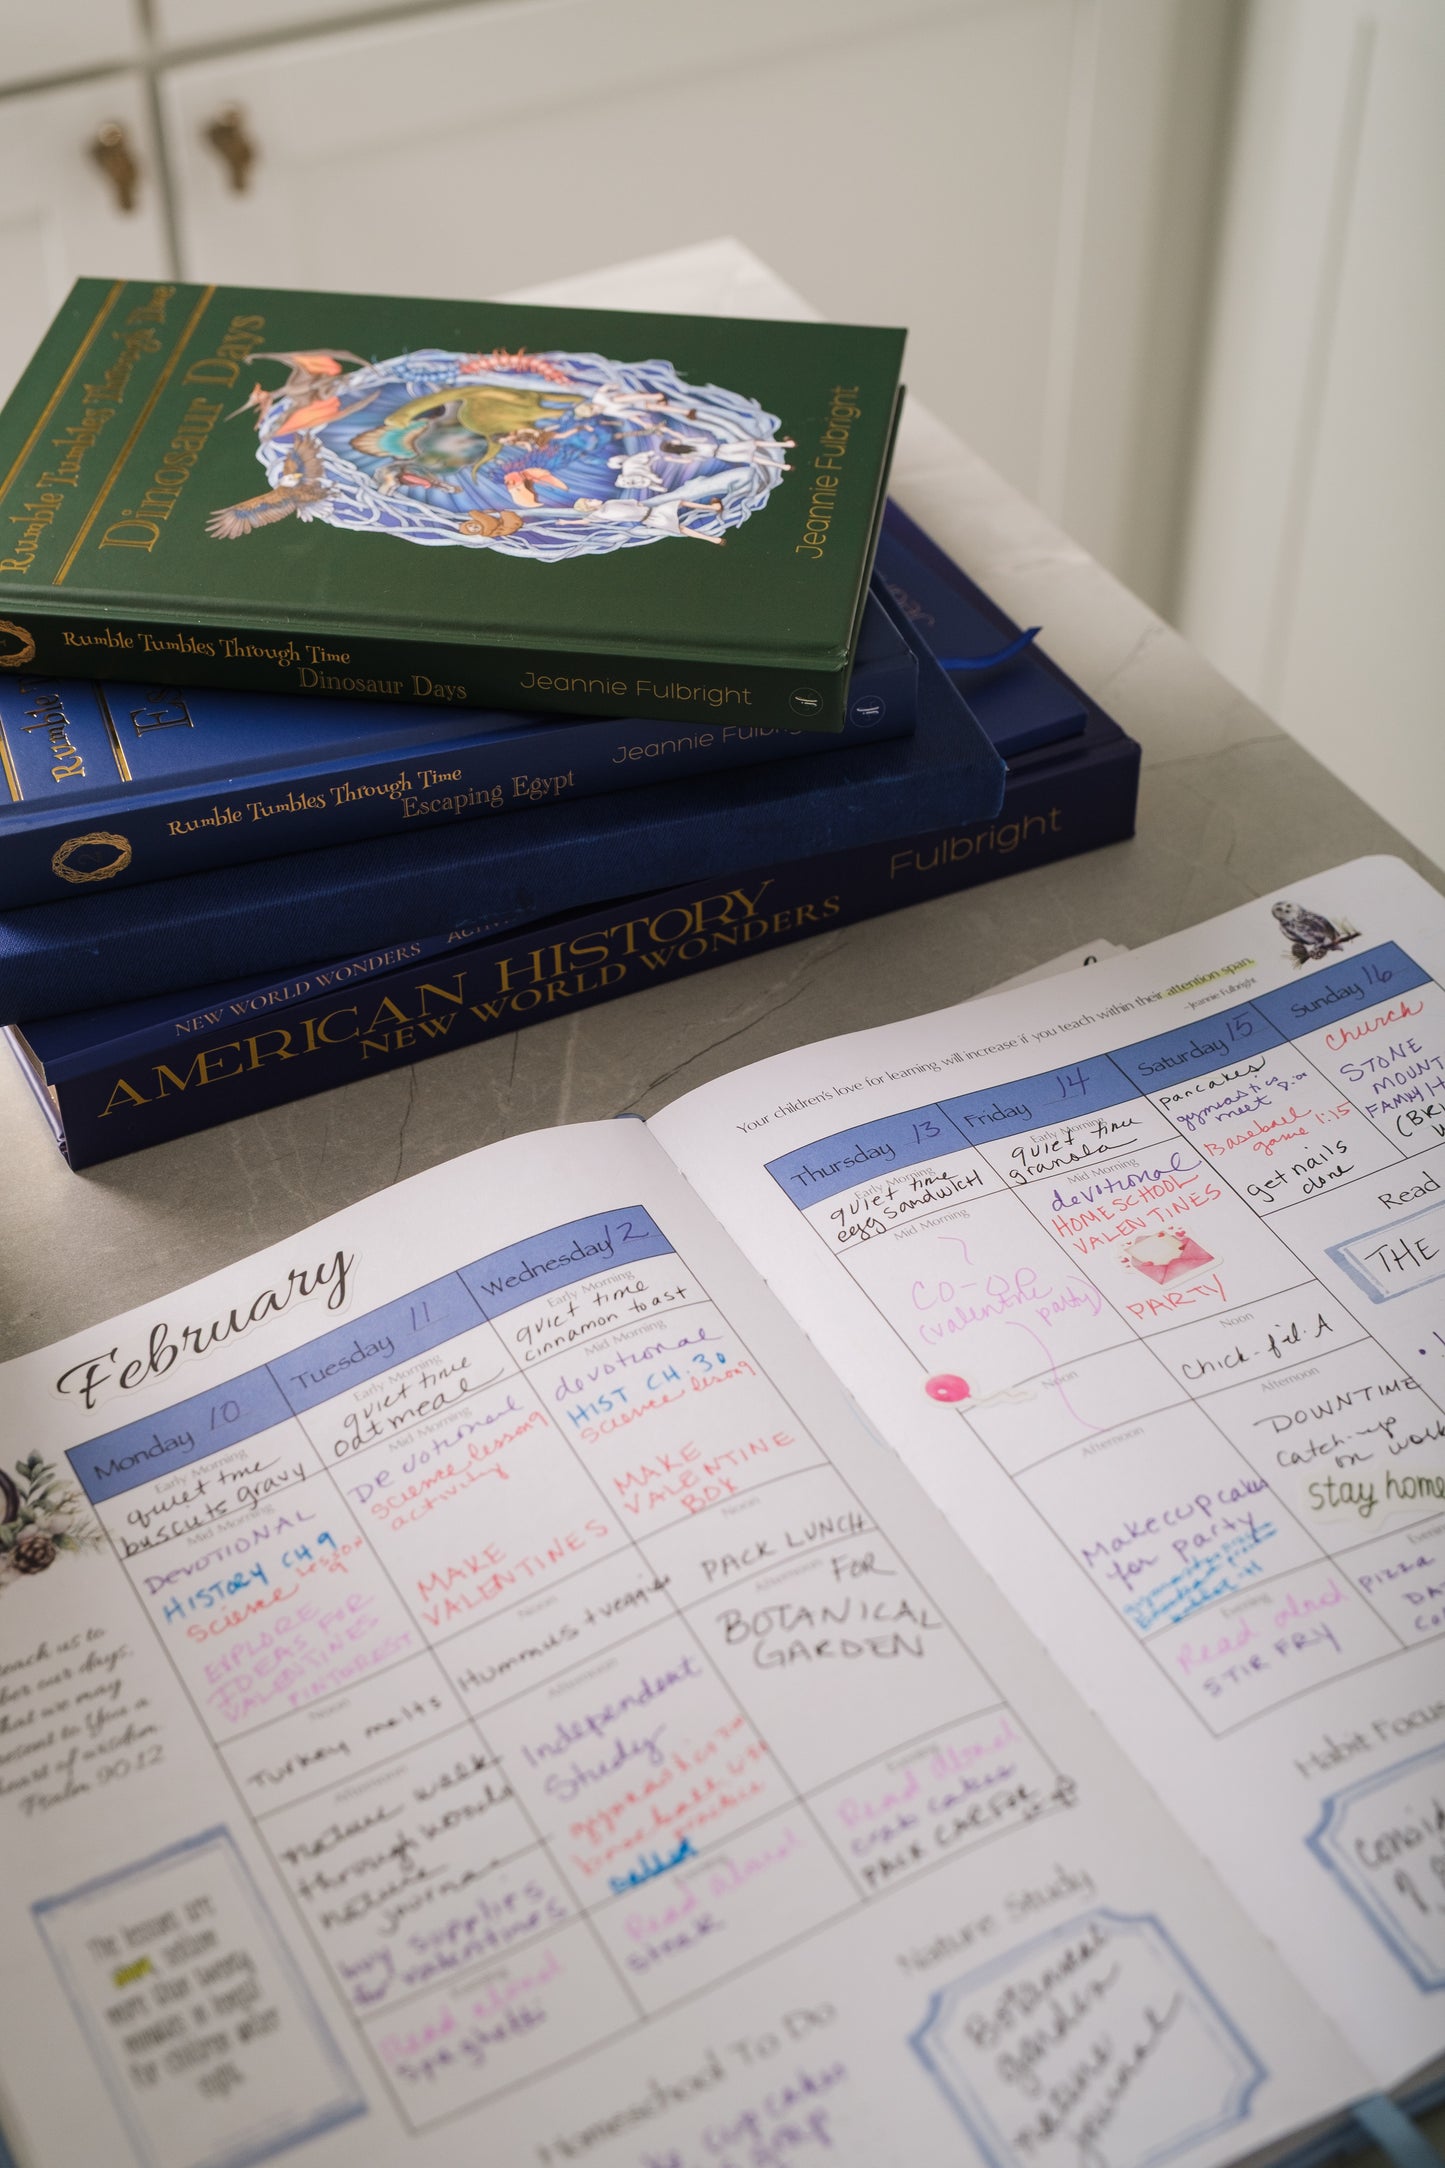 Rumble Tumbles Through Time
Dinosaur Days
Jeannie Fulbright
Rumble Tumbles Through Time
Dinosaur Days
Jeannie Fulbright
Rumble
Es
Jeannie
Rumble Tumbles Through Time
Escaping Egypt
NEW WORLD WONDERS
AMERICAN HISTORY
NEW WORLD WONDERS
Fulbright
Your children's love for learning will increase if you teach within their attention span.
-Jeannie Fulbright
February
Monday 10
Early Morning
quiet time
buscuts gravy
Mid Morning
DEVOTIONAL
HISTORY CH 9
science lesson
9
EXPLORE
IDEAS FOR
VALENTINES
PINTEREST
Noon
Turkey melts
Afternoon
nature walk
through woods
nature
journal
buy supplies
for valentines
Read aloud
spaghetti
Tuesday 11
Early Morning
quiet time
oatmeal
Mid Morning
Devotional
science lesson 9
activity
MAKE
VALENTINES
Noon
Hummus + veggies
Afternoon
Independent
Study
gymnastics
ballet
Read aloud
steak
Wednesday 12
Early Morning
quiet time
cinnamon toast
Mid Morning
devotional
HIST CH. 30
science lesson 9
MAKE
VALENTINE
BOX
Noon
PACK LUNCH
Afternoon
FOR
BOTANICAL
GARDEN
Evening
Read aloud
crab cakes
PACK CAR FOR CO-OP
Thursday 13
Early Morning
quiet time
egg sandwich
Mid Morning
CO-OP
(valentine party)
Noon
Afternoon
Make cupcakes
for party
Evening
Read aloud
STIR FRY
Friday 14
Early Morning
quiet time
granola
Mid Morning
devotional
HOMESCHOOL
VALENTINES
PARTY
Noon
Chick-fil-A
Afternoon
DOWNTIME
catch-up
on work
stay home
Evening
pizza
Saturday 15
pancakes
gymnastics
meet
Baseball
game 1:15
get nails
done
Sunday 16
church
STONE
MOUNT
FAMILY
Read
THE
teach us to
our days,
that we may
present to You a
heart of wisdom.
Psalm 90:12
The lessons are
short
Homeschool To Do
cupcakes
Nature Study
Botanical
garden
nature
journal
Habit Focus